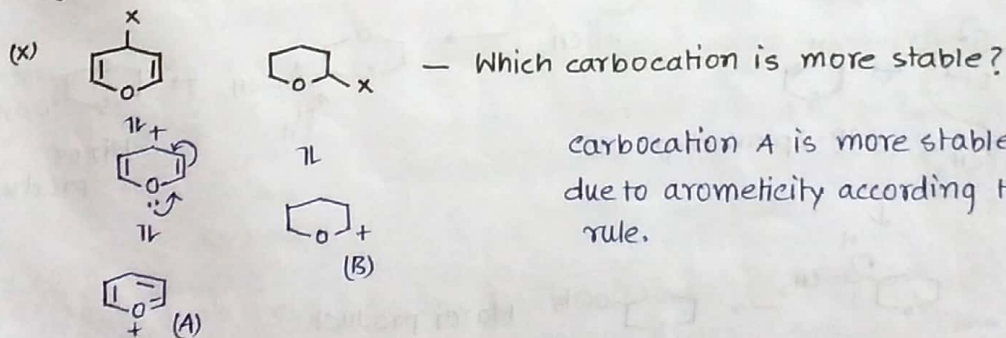 X
(x) O O X — Which carbocation is more stable?
+
O
carbocation A is more stable
due to arometicity according
O +
rule.
(B)
O
+ (A)